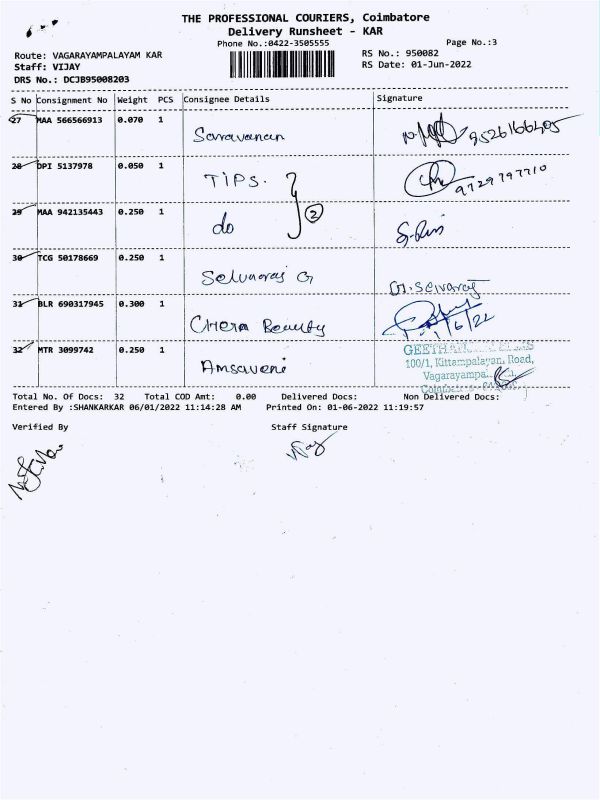 THE PROFESSIONAL COURIERS, Coimbatore
Delivery Runsheet - KAR
Phone No.:0422-3505555
Page No.:3
Route: VAGARAYAMPALAYAM KAR
RS No.: 950082
Staff: VIJAY
RS Date: 01-Jun-2022
DRS No.: DCJB95008203
S No Consignment No Weight PCS Consignee Details Signature
27 MAA 566566913 0.070 1 Saravanan 9526166405
28 DPI 5137978 0.050 1 TIPS. 9729797710
29 MAA 942135443 0.250 1 do 2
30 TCG 50178669 0.250 1 Selvaraj G G. Selvaraj
31 BLR 690317945 0.300 1 Chera Beauty 1/6/22
32 MTR 3099742 0.250 1 Amsaveni
100/1, Kittampalayan, Road,
Total No. Of Docs: 32 Total COD Amt: 0.00 Delivered Docs: Non Delivered Docs:
Entered By :SHANKARKAR 06/01/2022 11:14:28 AM Printed On: 01-06-2022 11:19:57
Verified By Staff Signature